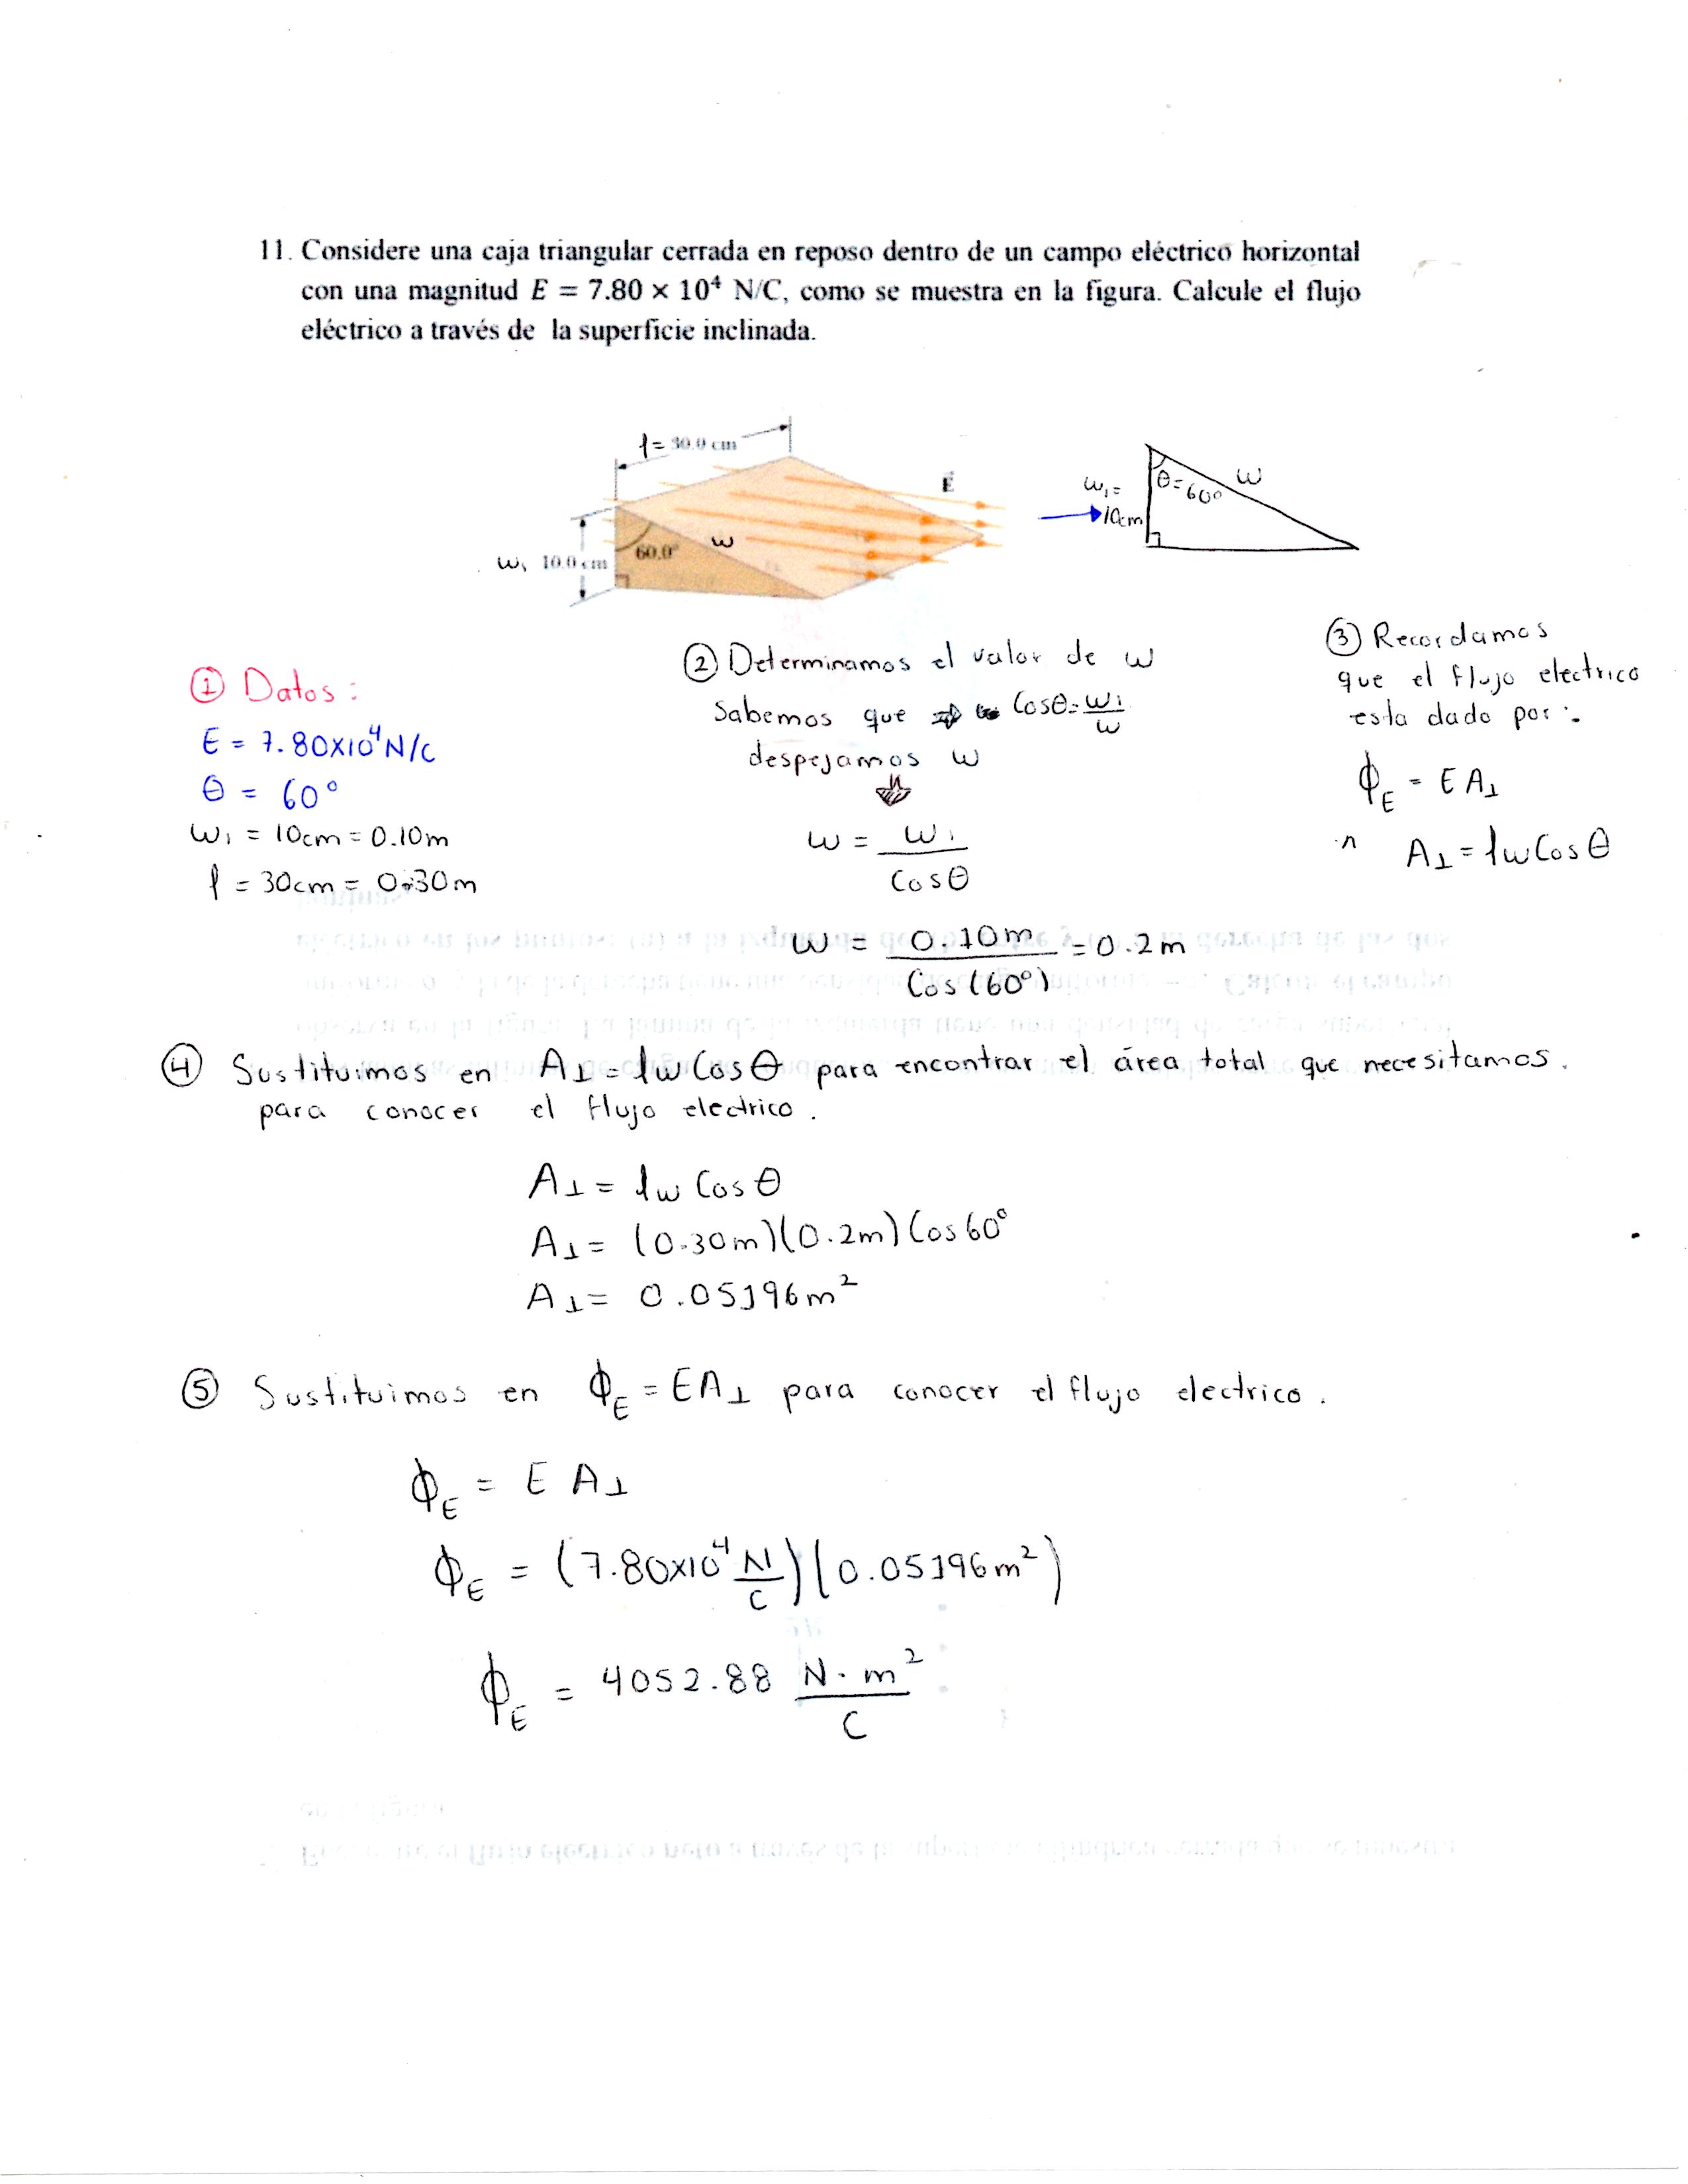 11. Considere una caja triangular cerrada en reposo dentro de un campo eléctrico horizontal
con una magnitud E = 7.80 × 10⁴ N/C, como se muestra en la figura. Calcule el flujo
eléctrico a través de la superficie inclinada.
l = 30.0 cm
E
w₁ 10.0 cm
60.0°
w
w₁ =
10cm
θ=60°
w
① Datos:
E = 7.80x10⁴ N/C
θ = 60°
w₁ = 10cm = 0.10m
l = 30cm = 0.30m
② Determinamos el valor de w
Sabemos que ⇒ Cosθ = w₁/w
despejamos w
w = w₁/Cosθ
w = 0.10m/Cos(60°) = 0.2m
③ Recordamos
que el flujo electrico
esta dado por:
ϕE = EA⊥
A⊥ = lwCosθ
④ Sustituimos en A⊥ = lwCosθ para encontrar el área total que necesitamos.
para conocer el flujo electrico.
A⊥ = lw Cosθ
A⊥ = (0.30m)(0.2m) Cos60°
A⊥ = 0.05196m²
⑤ Sustituimos en ϕE = EA⊥ para conocer el flujo electrico.
ϕE = E A⊥
ϕE = (7.80x10⁴ N/C)(0.05196m²)
ϕE = 4052.88 N·m²/C